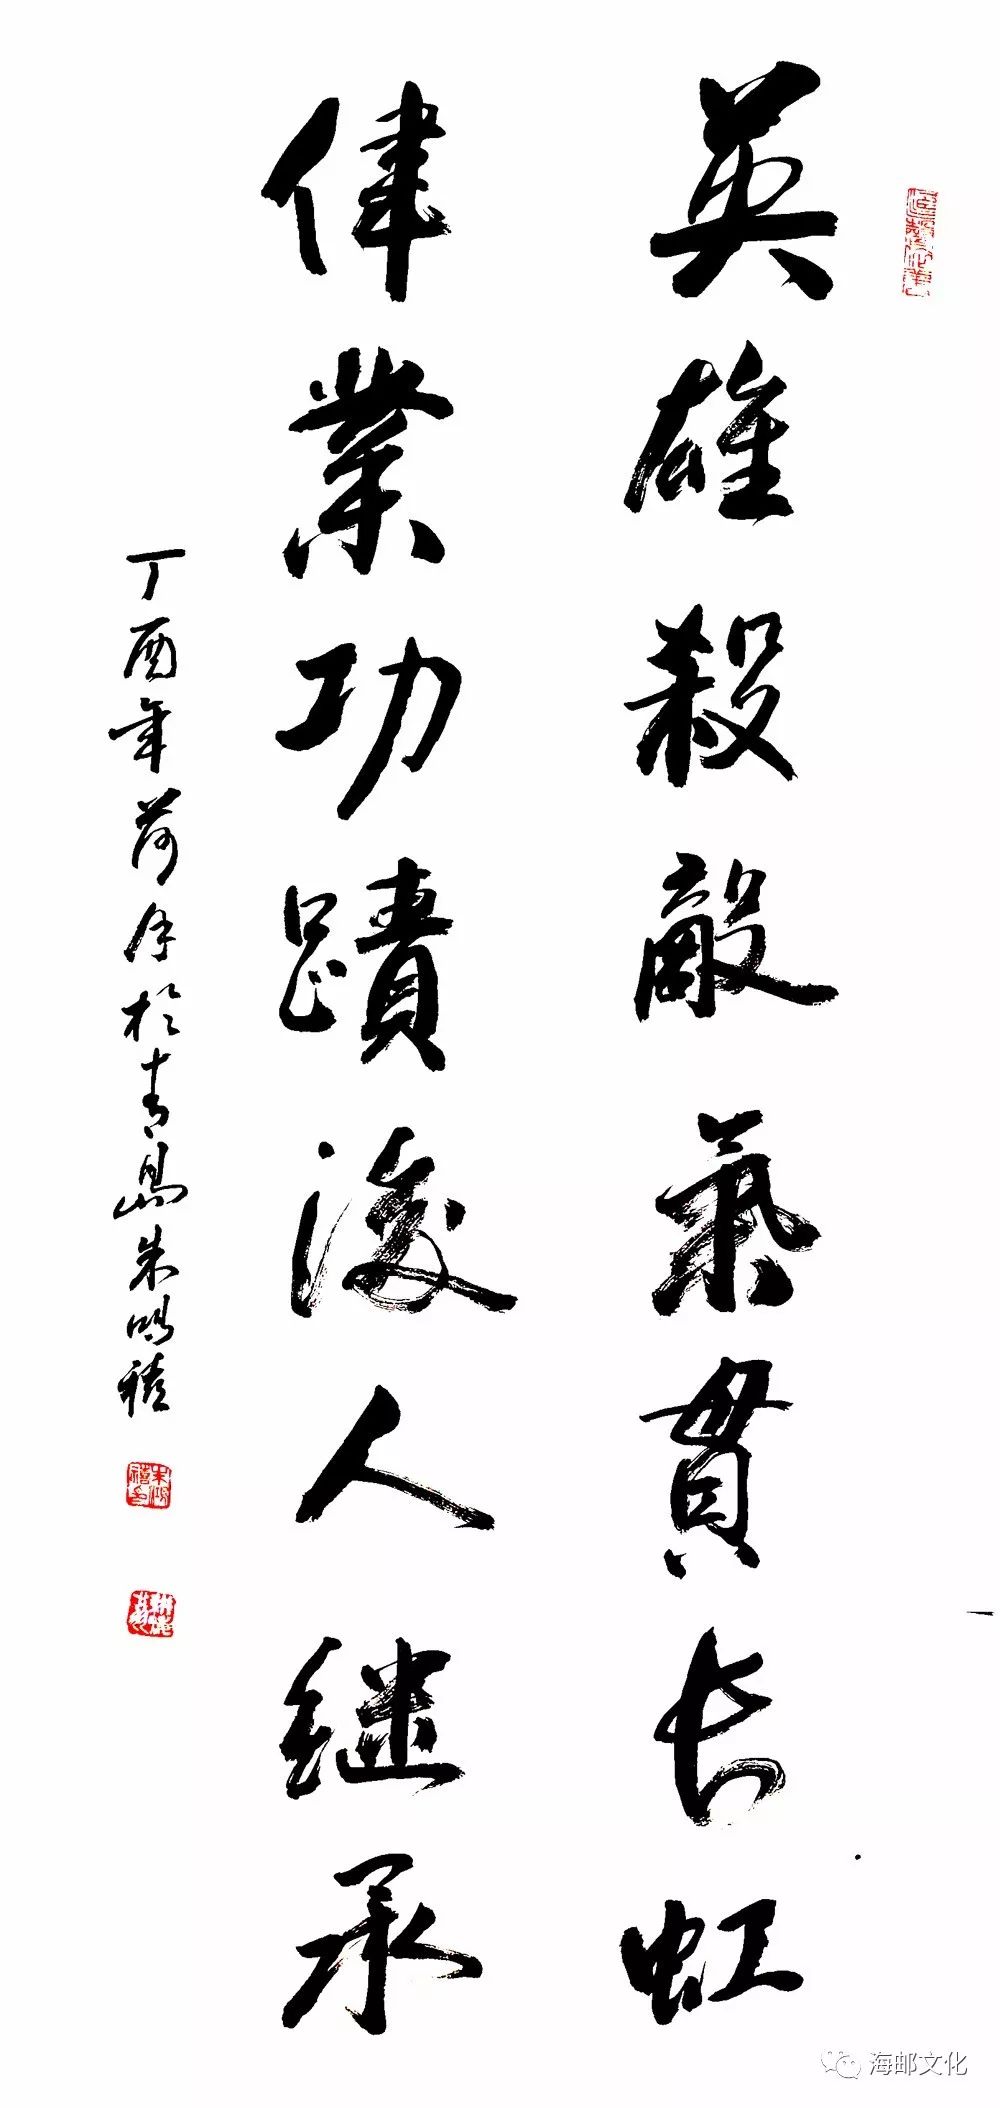 英雄殺敵氣貫长虹
偉業功蹟後人继承
丁酉年荷月於青島朱鸣禧
海邮文化